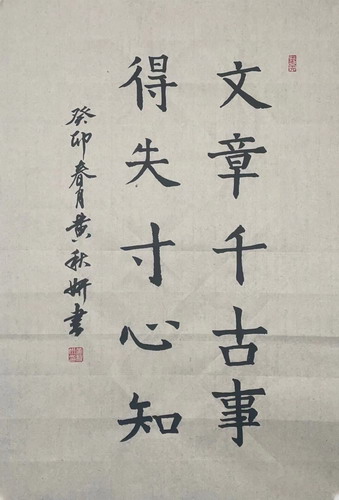 文章千古事
得失寸心知
癸卯春月黄秋妍书